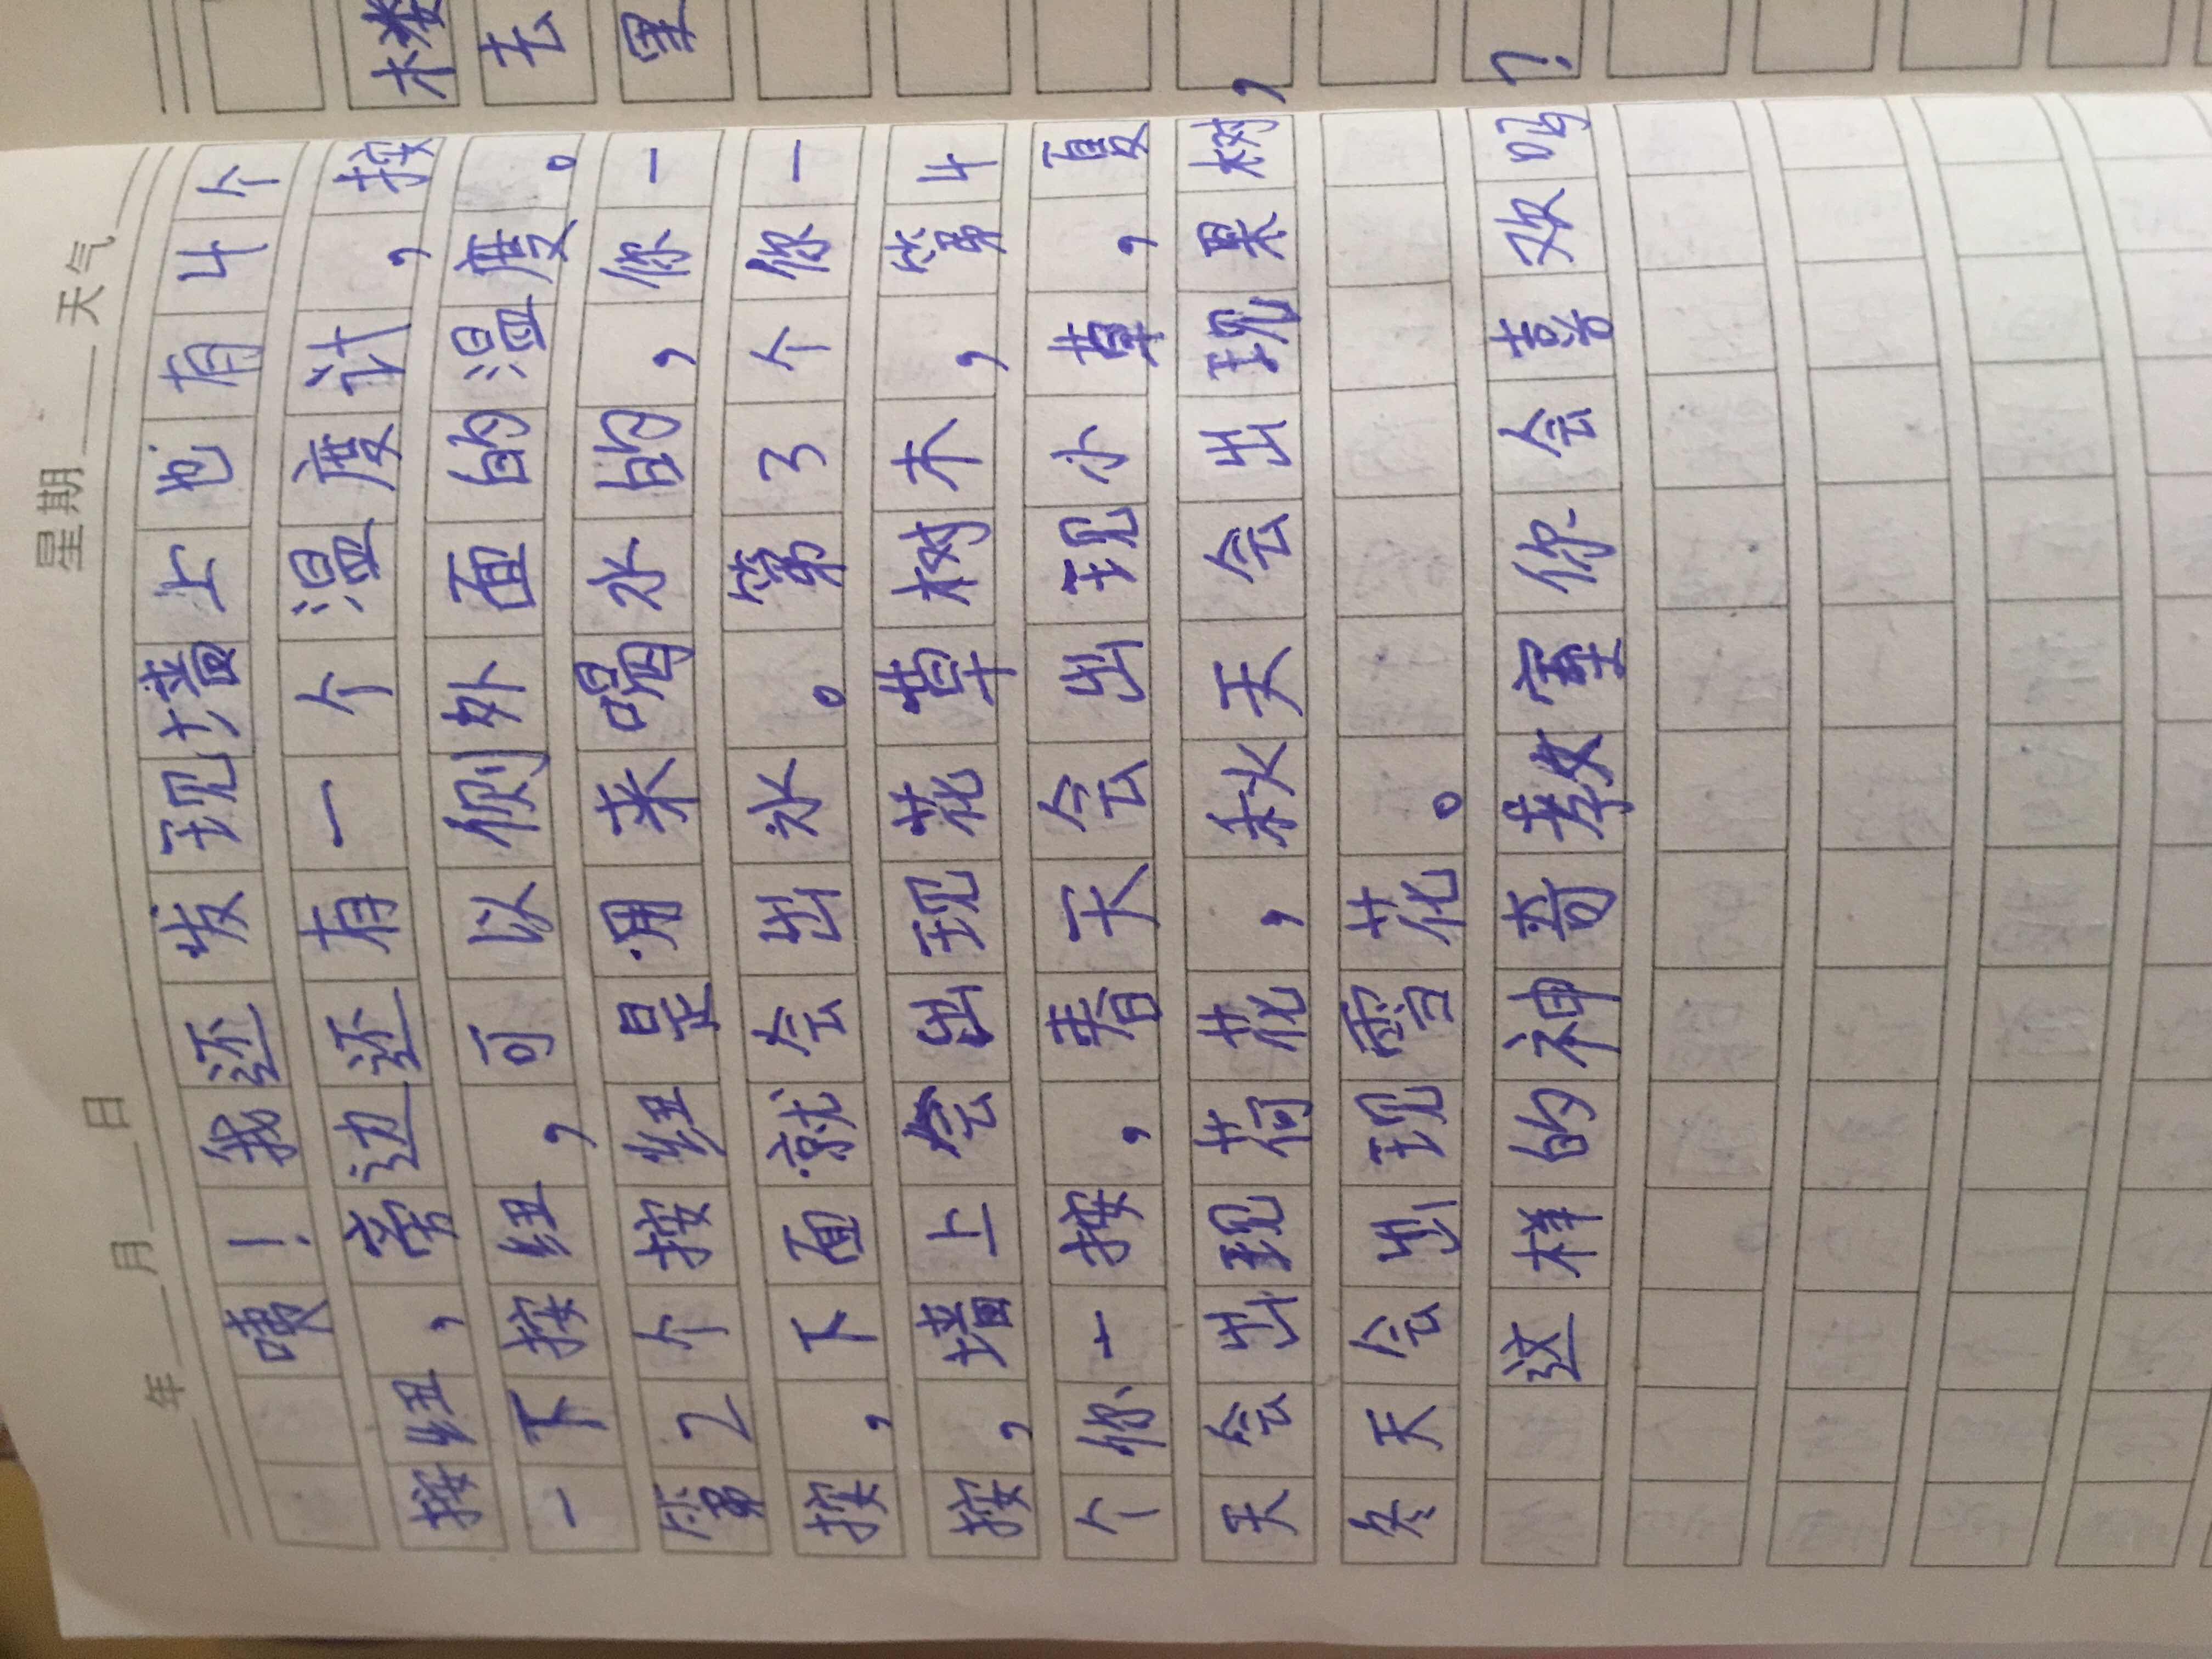 年 月 日 星期 天气
噢！我还发现墙上也有4个
按纽，旁边还有一个温度计，按
一下按纽，可以侧外面的温度。
第2个按纽是用来喝水的，你一
按，下面就会出水。第3个你一
按，墙上会出现花草树木，第4
个你一按，春天会出现小草，夏
天会出现荷花，秋天会出现果树，
冬天会出现雪花。
这样的神奇教室你会喜欢吗？